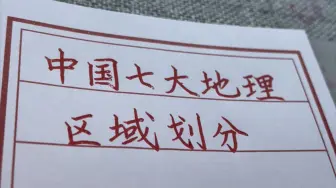 中国七大地理
区域划分